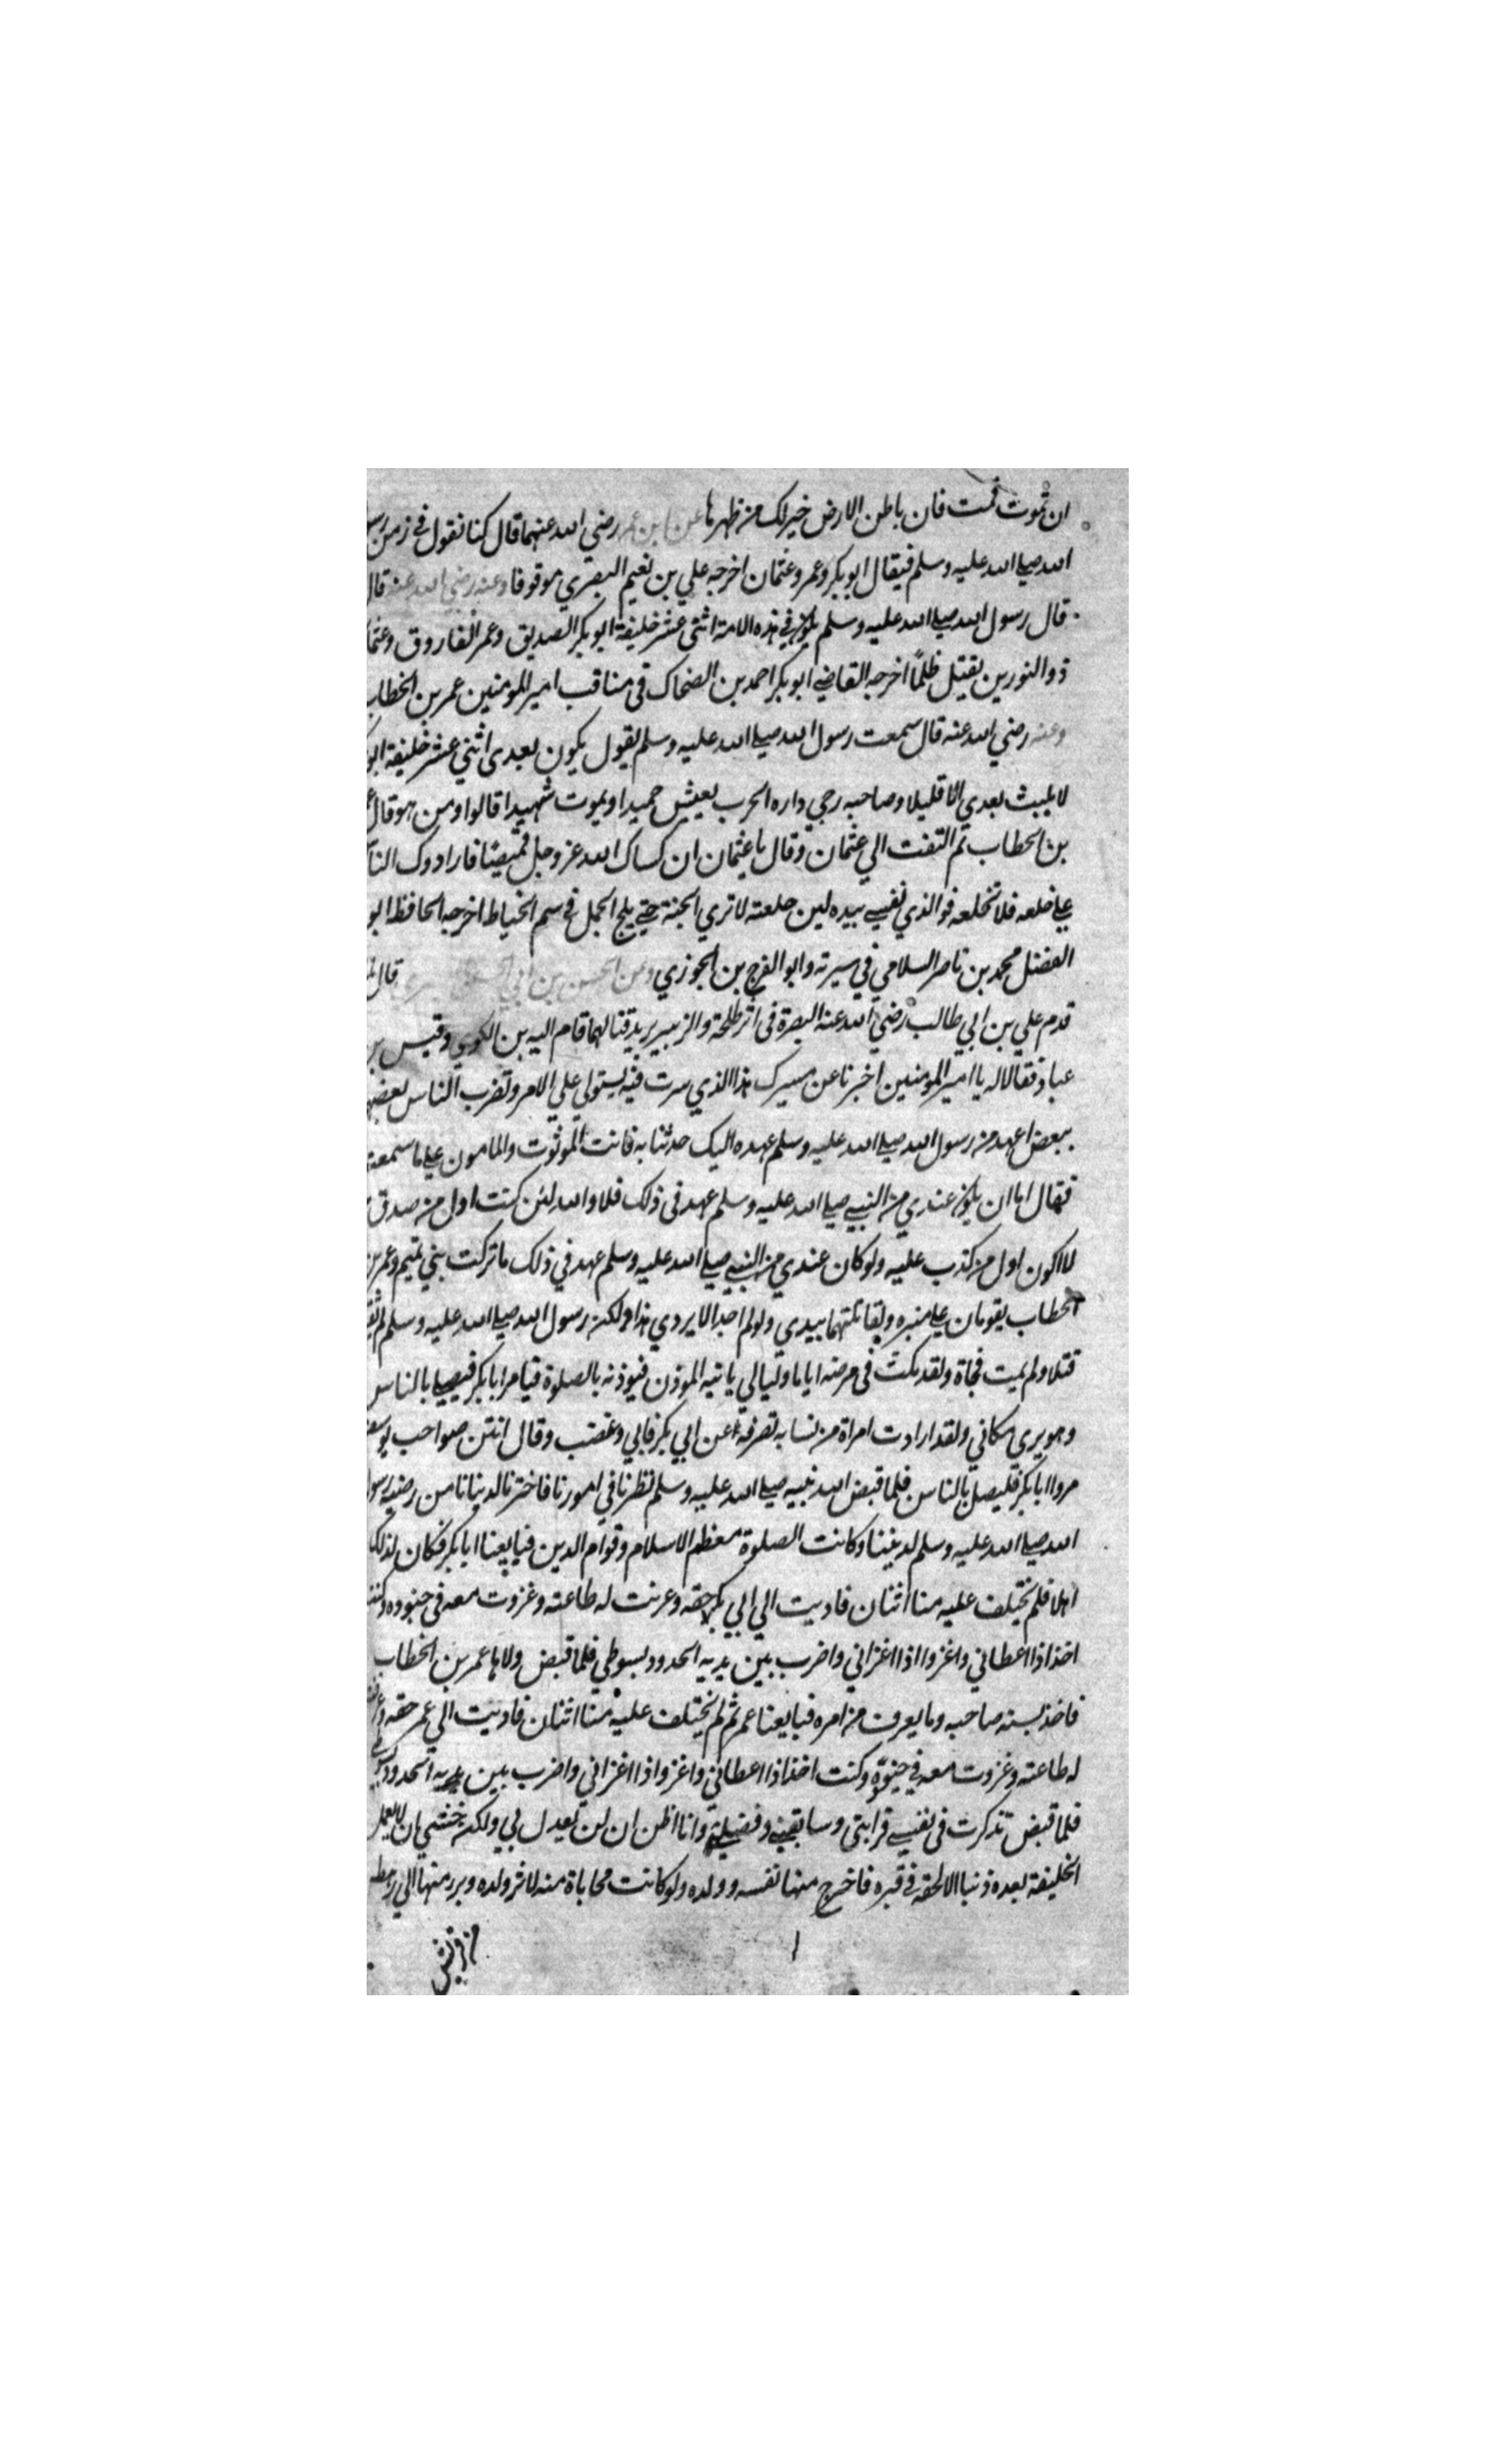 ان تموت فمت فان باطن الارض خير لك من ظهرها عن ابن عمر رضي الله عنهما قال كنا نقول في زمن رسو
الله صلى الله عليه وسلم فيقال ابو بكر وعمر وعثمان اخرجه علي بن نعيم البصري موقوفا وعنه رضي الله عنه قال
قال رسول الله صلى الله عليه وسلم يكون في هذه الامة اثنى عشر خليفة ابو بكر الصديق وعمر الفاروق وعثما
ذو النورين يقتل ظلمًا اخرجه القاضي ابو بكر احمد بن الضحاك في مناقب امير المومنين عمر بن الخطاب
وعنه رضي الله عنه قال سمعت رسول الله صلى الله عليه وسلم يقول يكون بعدى اثني عشر خليفة ابو
لا يلبث بعدي الا قليلا وصاحبه رحي داره الحرب يعيش حميدا ويموت شهيدا قالوا ومن هو قال
بن الخطاب ثم التفت الي عثمان وقال يا عثمان ان كساك الله عز وجل قميصًا فارادوك النا
على خلعه فلا تخلعه فو الذي نفسي بيده لين خلعته لا تري الجنة حتى يلج الجمل في سم الخياط اخرجه الحافظ ابو
الفضل محمد بن ناصر السلامي في سيرته وابو الفرج بن الجوزي وعن الحسن بن ابي الحسن قال
قدم علي بن ابي طالب رضي الله عنه البصرة في اثر طلحة والزبير يريد قتالهما قام اليه بن الكوي وقيس بن
عباد فقالا له يا امير المومنين اخبرنا عن مسيرك هذا الذي سرت فيه يستولي علي الامر وتضرب الناس بعضهم
ببعض اعهد من رسول الله صلى الله عليه وسلم عهده اليك حدثنا به فانت الموثوت والمامون على ما سمعت
فقال اما ان يكون عندي من النبي صلى الله عليه وسلم عهد في ذلك فلا والله لئن كنت اول من صدق
لا اكون اول من كذب عليه ولو كان عندي من النبي صلى الله عليه وسلم عهد في ذلك ما تركت بني تميم وعمر بن
الخطاب يقومان على منبره ولقاتلتهما بيدي ولو لم اجد الا بردي هذا ولكن رسول الله صلى الله عليه وسلم لم يقتل
قتلا ولم يمت فجاة ولقد مكث في مرضه اياما وليالي ياتيه الموذن فيوذنه بالصلوة فيامر ابا بكر فيصلي بالناس
وهو يرى مكاني ولقد ارادت امراة من نسابه تصرفه عن ابي بكر فابي وغضب وقال انتن صواحب يوسف
مروا ابا بكر فليصل بالناس فلما قبض الله نبيه صلى الله عليه وسلم نظرنا في امورنا فاخترنا لدنيانا من رضيه رسول
الله صلى الله عليه وسلم لديننا وكانت الصلوة معظم الاسلام وقوام الدين فبايعنا ابا بكر فكان لذلك
اهلا فلم يختلف عليه منا اثنان فاديت الي ابي بكر حقه وعرفت له طاعته وغزوت معه في جنوده وكنت
اخذ اذا اعطاني واغزوا اذا اغزاني واضرب بين يديه الحدود بسوطي فلما قبض ولاها عمر بن الخطاب
فاخذ بسنه صاحبه وما يعرف من امره فبايعنا عمر ثم لم يختلف عليه منا اثنان فاديت الي عمر حقه وعرفت
له طاعته وغزوت معه في جنوده وكنت اخذ اذا اعطاني واغزوا اذا اغزاني واضرب بين يديه الحدود بسوطي
فلما قبض تذكرت في نفسي قرابتى وسابقتي وفضيلتي وانا اظن ان لن يعدل بي ولكن خشي ان لا يعمل
الخليفة بعده ذنبا الا لحقه في قبره فاخرج منها نفسه وولده ولو كانت محاباة منه لاثر ولده وبرر منها الي رهط
من قريش